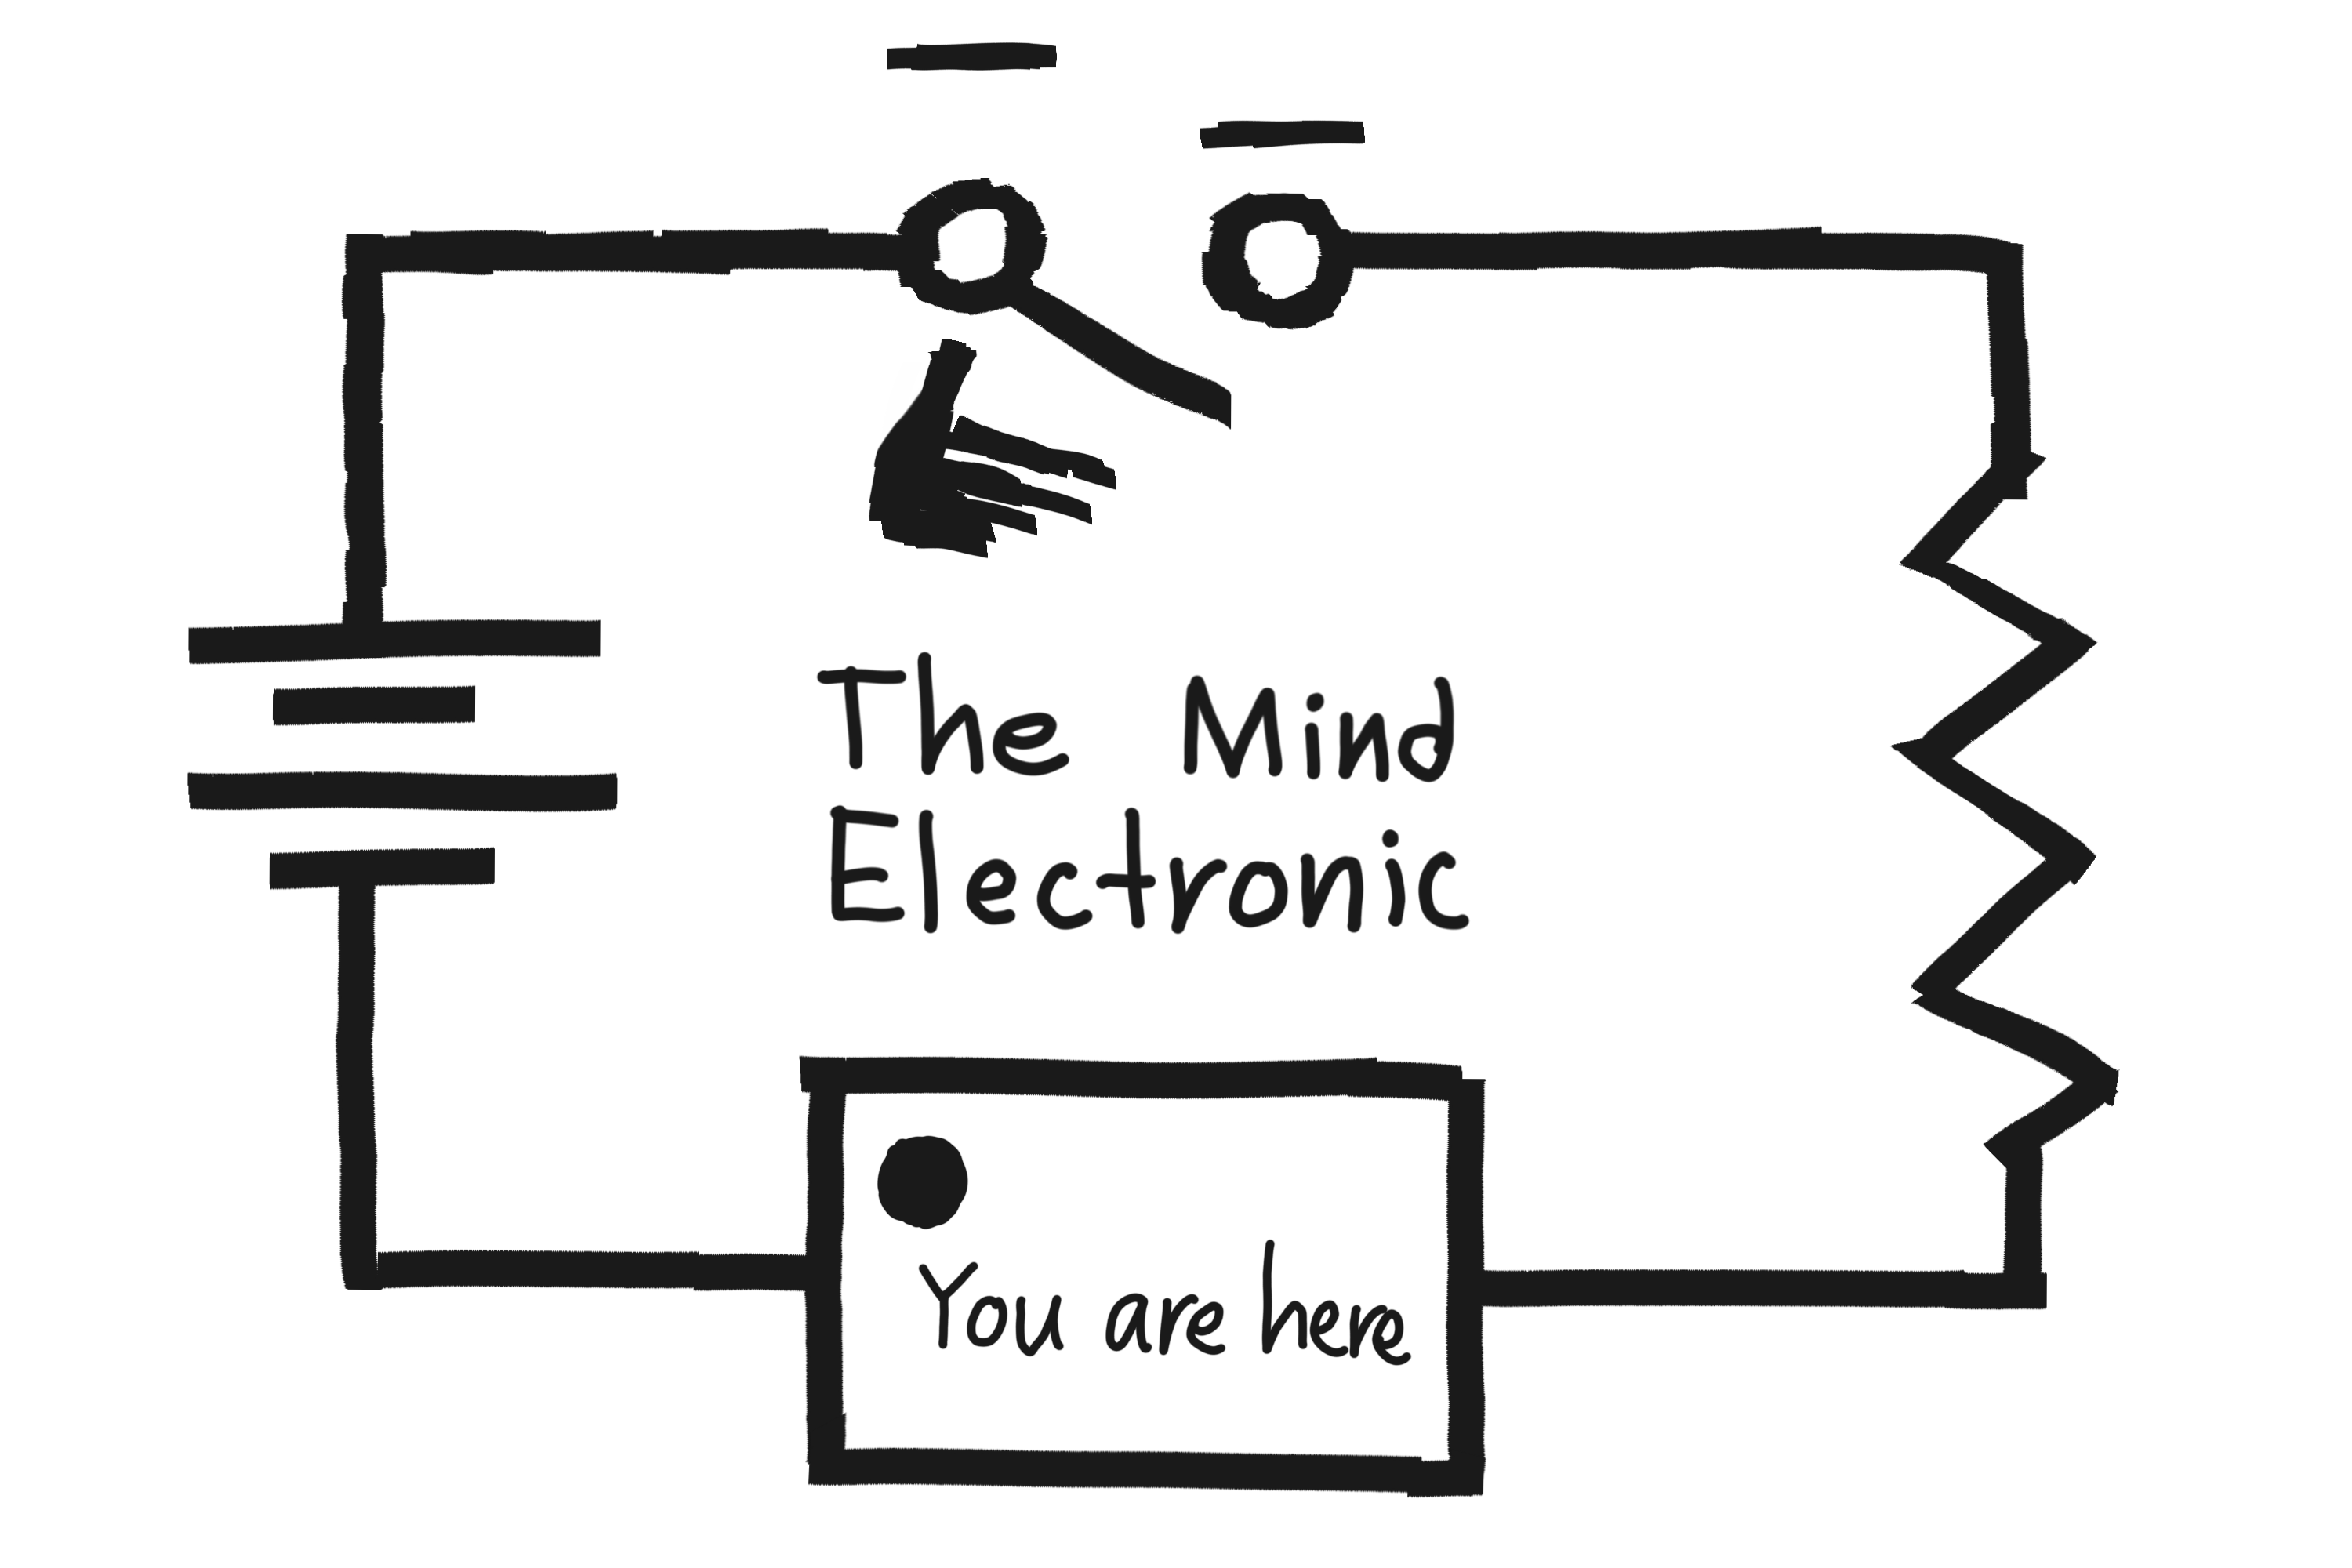 The Mind
Electronic
You are here